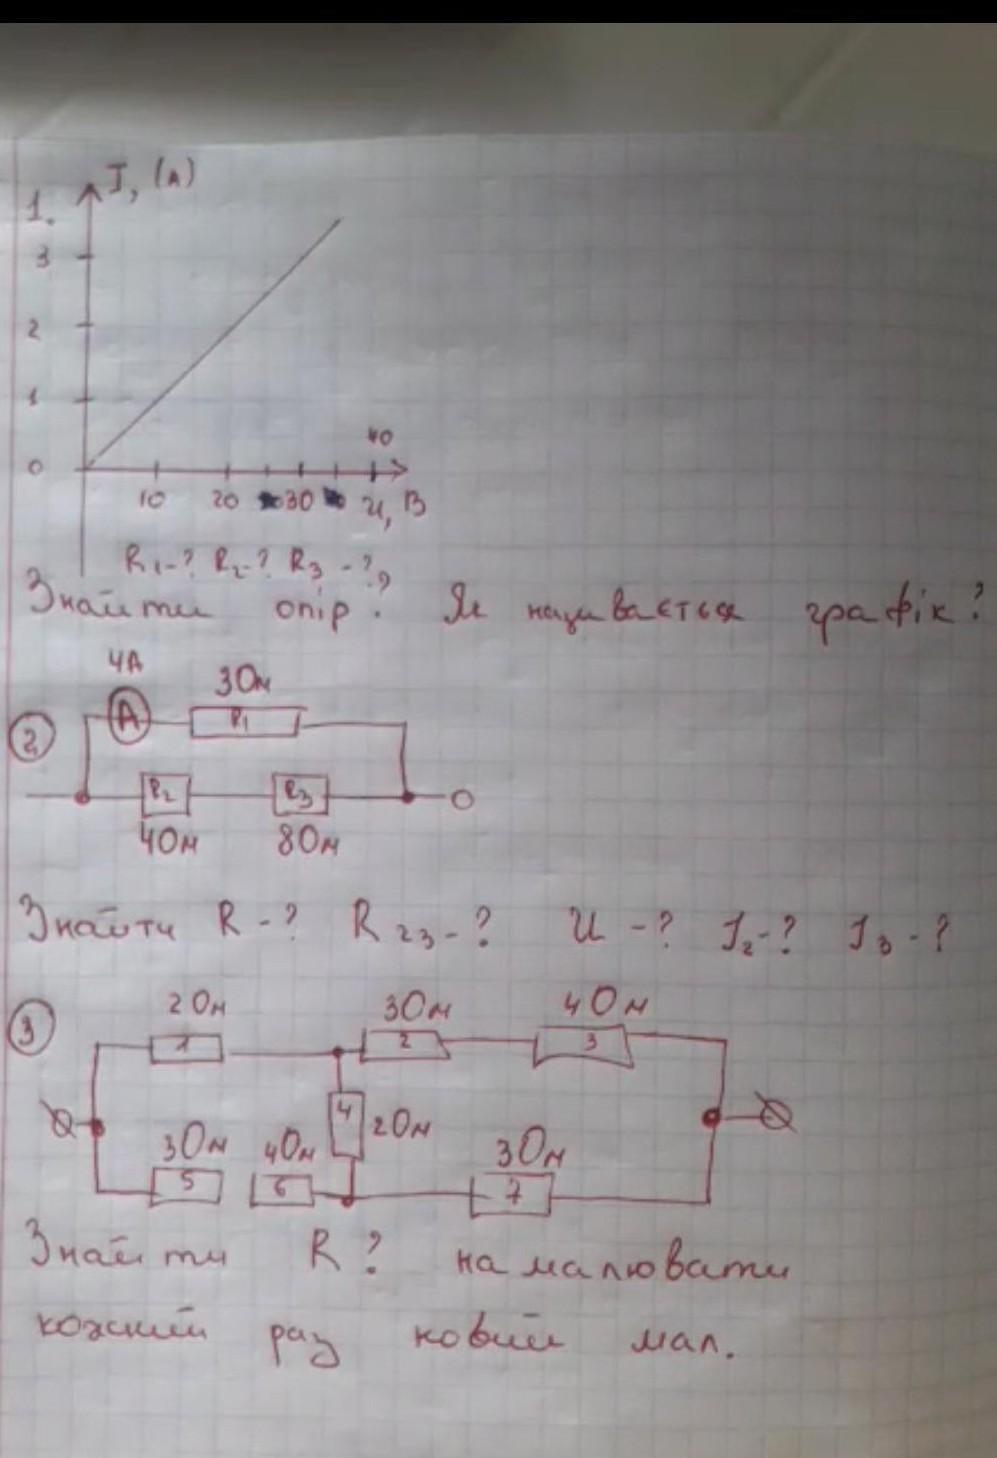 I, (А)
1.
3
2
1
0
40
10 20 30 U, В
R₁-? R₂-? R₃-?
Знайти опір? Як називається графік?
4А
3Ом
2 A R₁
R₂ R₃
4Ом 8Ом
Знайти R-? R₂₃-? U-? I₂-? I₃-?
3 2Ом 3Ом 4Ом
1 2 3
4 2Ом
3Ом 4Ом 3Ом
5 6 7
Знайти R? намалювати
кожний раз новий мал.